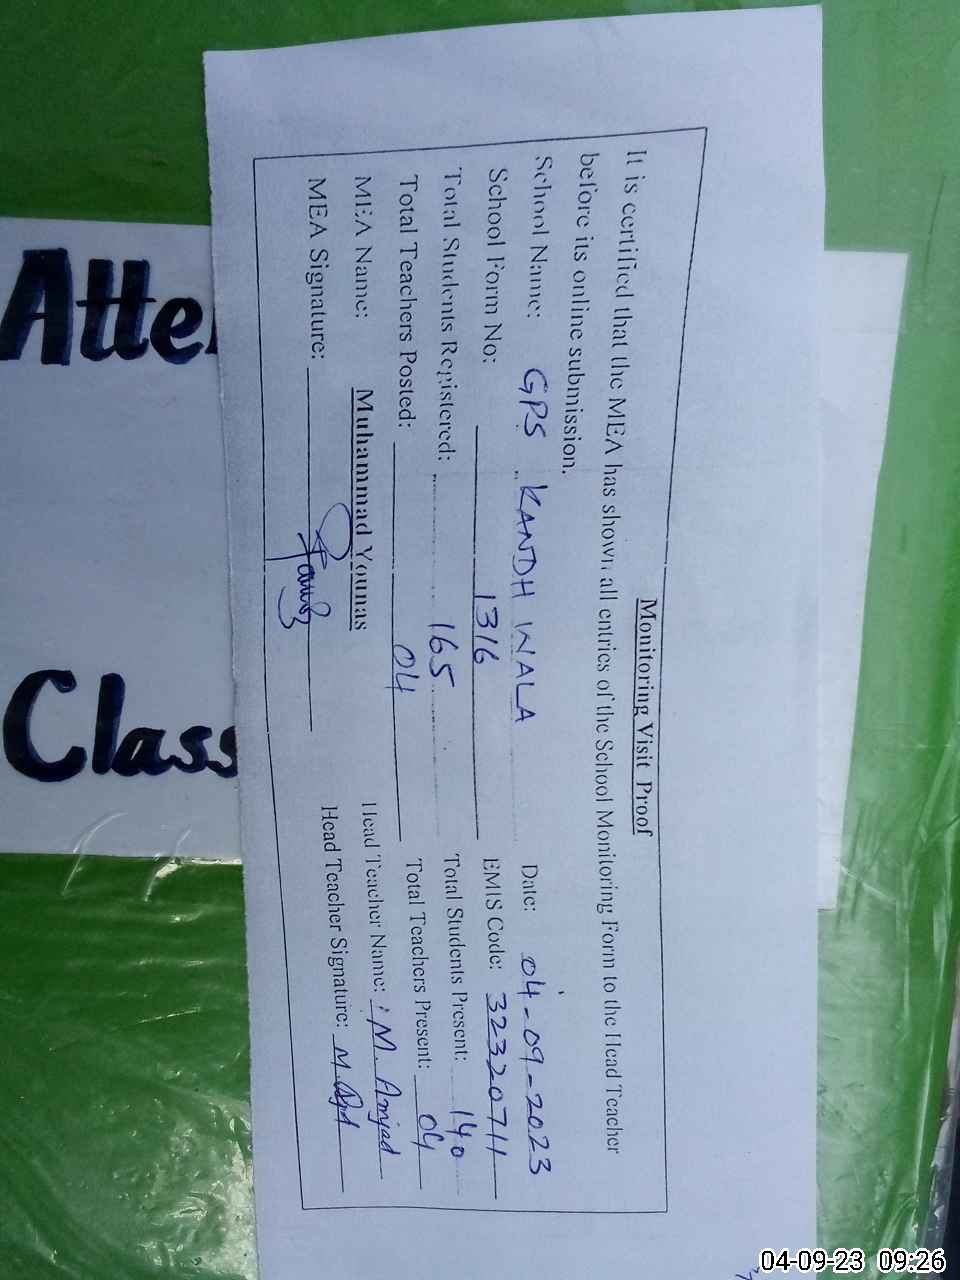 Monitoring Visit Proof
It is certified that the MEA has shown all entries of the School Monitoring Form to the Head Teacher
before its online submission.
School Name: GPS KANDH WALA Date: 04-09-2023
School Form No: 1316 EMIS Code: 32320711
Total Students Registered: 165 Total Students Present: 140
Total Teachers Posted: 04 Total Teachers Present: 04
MEA Name: Muhammad Younas Head Teacher Name: M. Amjad
MEA Signature: Head Teacher Signature:
Atte
Class
04-09-23 09:26